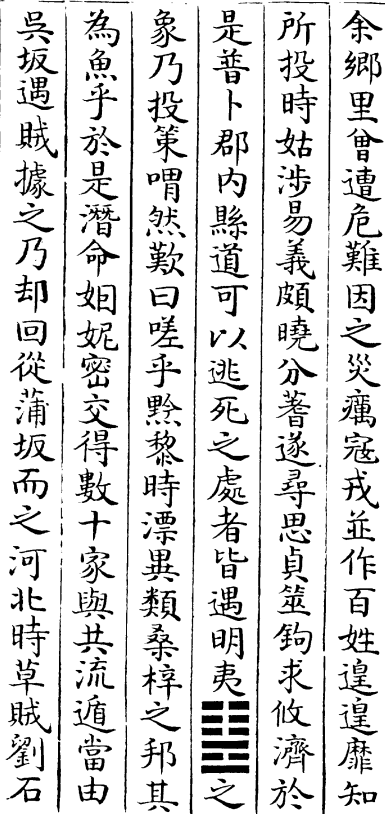 余鄉里曾遭危難因之災癘寇戎並作百姓遑遑靡知
所投時姑涉易義頗曉分蓍遂尋思貞筮鉤求攸濟於
是普卜郡內縣道可以逃死之處者皆遇明夷䷣之
象乃投策喟然歎曰嗟乎黔黎時漂異類桑梓之邦其
為魚乎於是潛命姻妮密交得數十家與共流遁當由
吳坂遇賊據之乃却回從蒲坂而之河北時草賊劉石